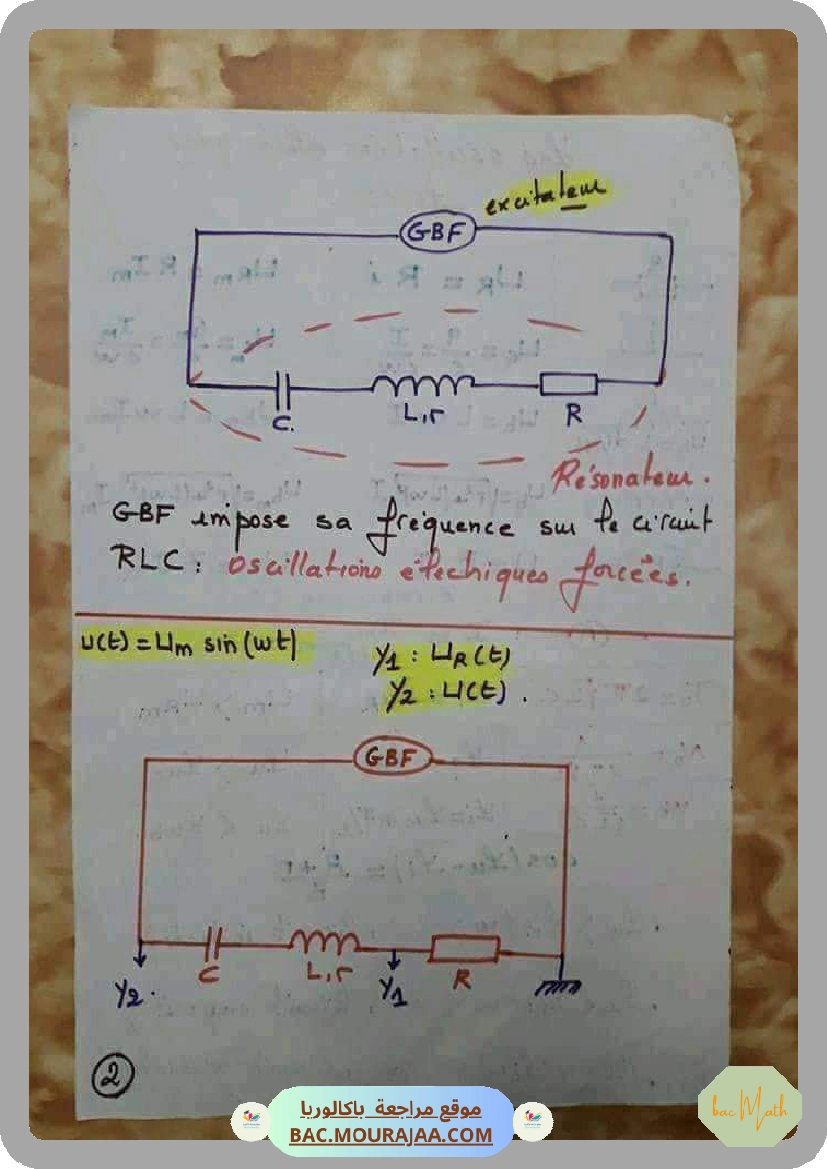 excitateur
GBF
C.
L,r
R
Résonateur.
GBF impose sa fréquence sur le circuit
RLC : Oscillations électriques forcées.
u(t) = Um sin(wt)
Y1 : UR(t)
Y2 : U(t).
GBF
C
L,r
R
Y2.
Y1
2
موقع مراجعة باكالوريا
BAC.MOURAJAA.COM
bac Math